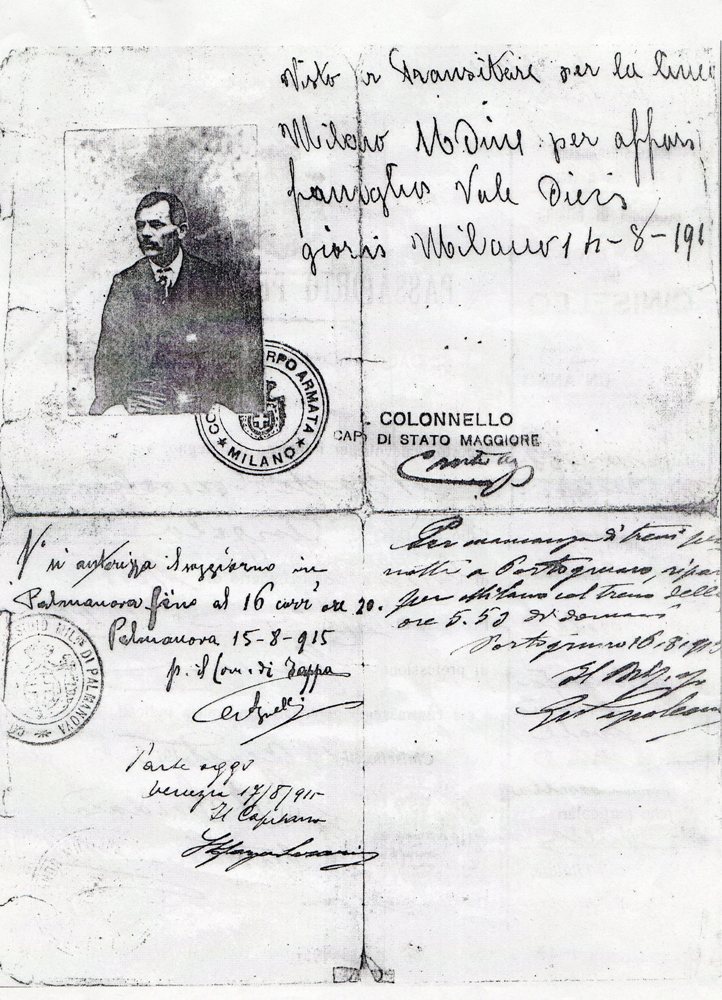 Visto a transitare per la linea
Milano Udine per affari
famiglia Vale Dieci
giorni Milano 14-8-191
CORPO ARMATA
MILANO
COLONNELLO
CAPO DI STATO MAGGIORE
Vº si autorizza il soggiorno in
Palmanova fino al 16 corrº ore 20.
Palmanova 15-8-915
p. il Com. di Tappa
DI PALMANOVA
Per mancanza di treni
notte a Portogruaro, ripar
per Milano col treno delle
ore 5.53 di domani
Portogruaro 16-8-915
Il
Parte oggi
Venezia 17/8/915
Il Capitano